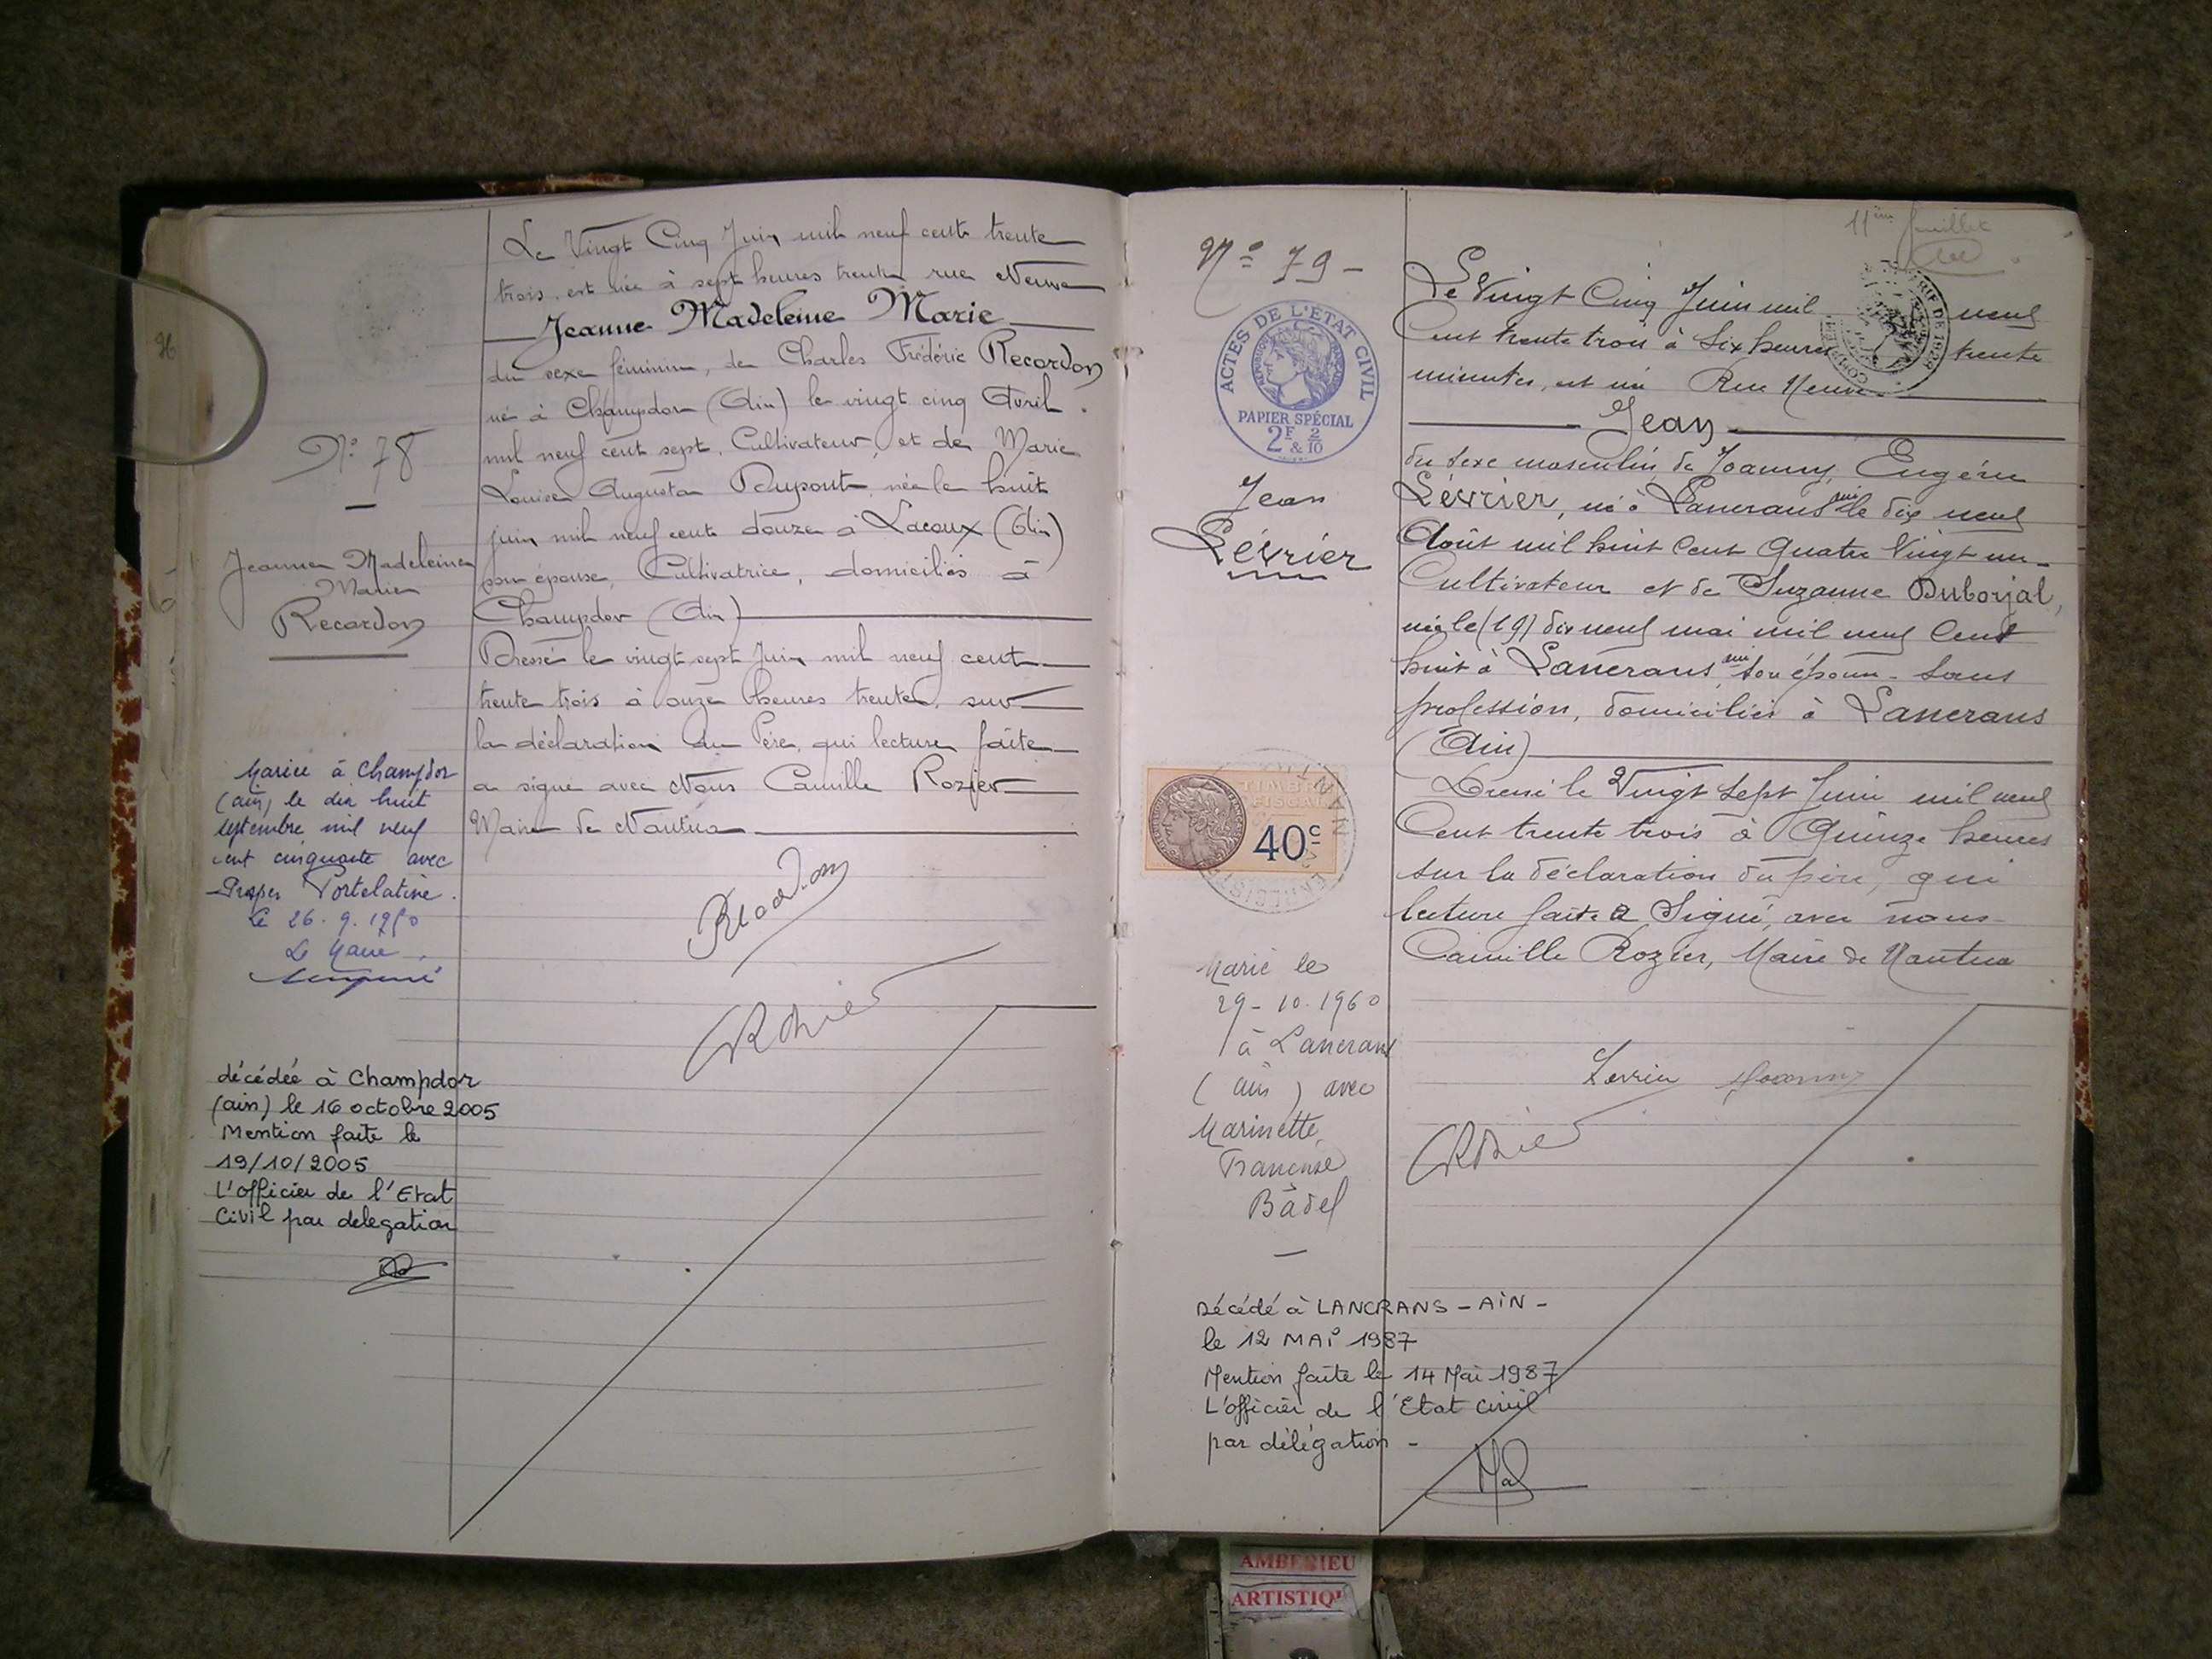 Le Vingt Cinq Juin mil neuf cent trente
trois est née à sept heures trente rue Neuve
Jeanne Madeleine Marie
du sexe féminin, de Charles Frédéric Recordon
né à Champdor (Ain) le vingt cinq Avril
mil neuf cent sept, Cultivateur, et de Marie
Louise Augusta Dupont née le huit
juin mil neuf cent douze à Lacoux (Ain)
son épouse, Cultivatrice, domiciliés à
Champdor (Ain)
Dressé le vingt sept Juin mil neuf cent
trente trois à onze heures trente, sur
la déclaration du Père, qui lecture faite
a signé avec Nous Camille Rozier
Maire de Nantua
N° 78
Jeanne Madeleine
Marie
Recordon
Mariée à Champdor
(ain) le dix huit
septembre mil neuf
cent cinquante avec
Prosper Portelatine.
Le 26.9.1950
Le Maire
décédée à Champdor
(ain) le 16 octobre 2005
Mention faite le
19/10/2005
L'officier de l'Etat
Civil par delegation
11ème feuillet
N° 79 -
ACTES DE L'ETAT CIVIL
REPUBLIQUE FRANÇAISE
PAPIER SPÉCIAL
2F & 2/10
Jean
Lévrier
TIMBRE
FISCAL
40c
Marié le
29-10-1960
à Lancrans
(ain) avec
Marinette
Françoise
Badel
Décédé à LANCRANS - AIN -
le 12 MAI 1987
Mention faite le 14 Mai 1987
L'officier de l'Etat civil
par délégation -
Le Vingt Cinq Juin mil neuf
Cent trente trois à Six heures trente
minutes, est né Rue Neuve
Jean
du sexe masculin de Joanny, Eugène
Lévrier, né à Lancrans ain le dix neuf
Août mil huit Cent Quatre Vingt un
Cultivateur et de Suzanne Duborjal,
née le (19) dix neuf mai mil neuf Cent
huit à Lancrans, ain son épouse - sans
profession, domiciliés à Lancrans
(Ain)
Dressé le Vingt Sept Juin mil neuf
Cent trente trois à Quinze heures
sur la déclaration du père, qui
lecture faite a Signé, avec nous
Camille Rozier, Maire de Nantua
Levrier Joanny
AMBERIEU
ARTISTIQ